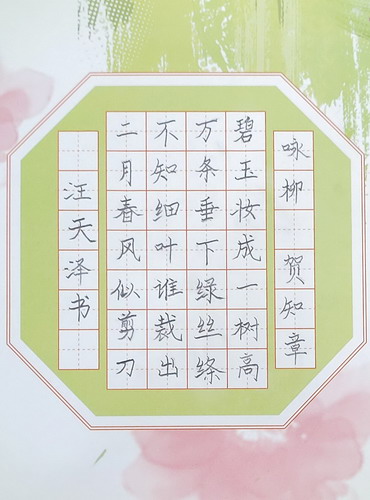 咏柳 贺知章
碧玉妆成一树高
万条垂下绿丝绦
不知细叶谁裁出
二月春风似剪刀
汪天泽书